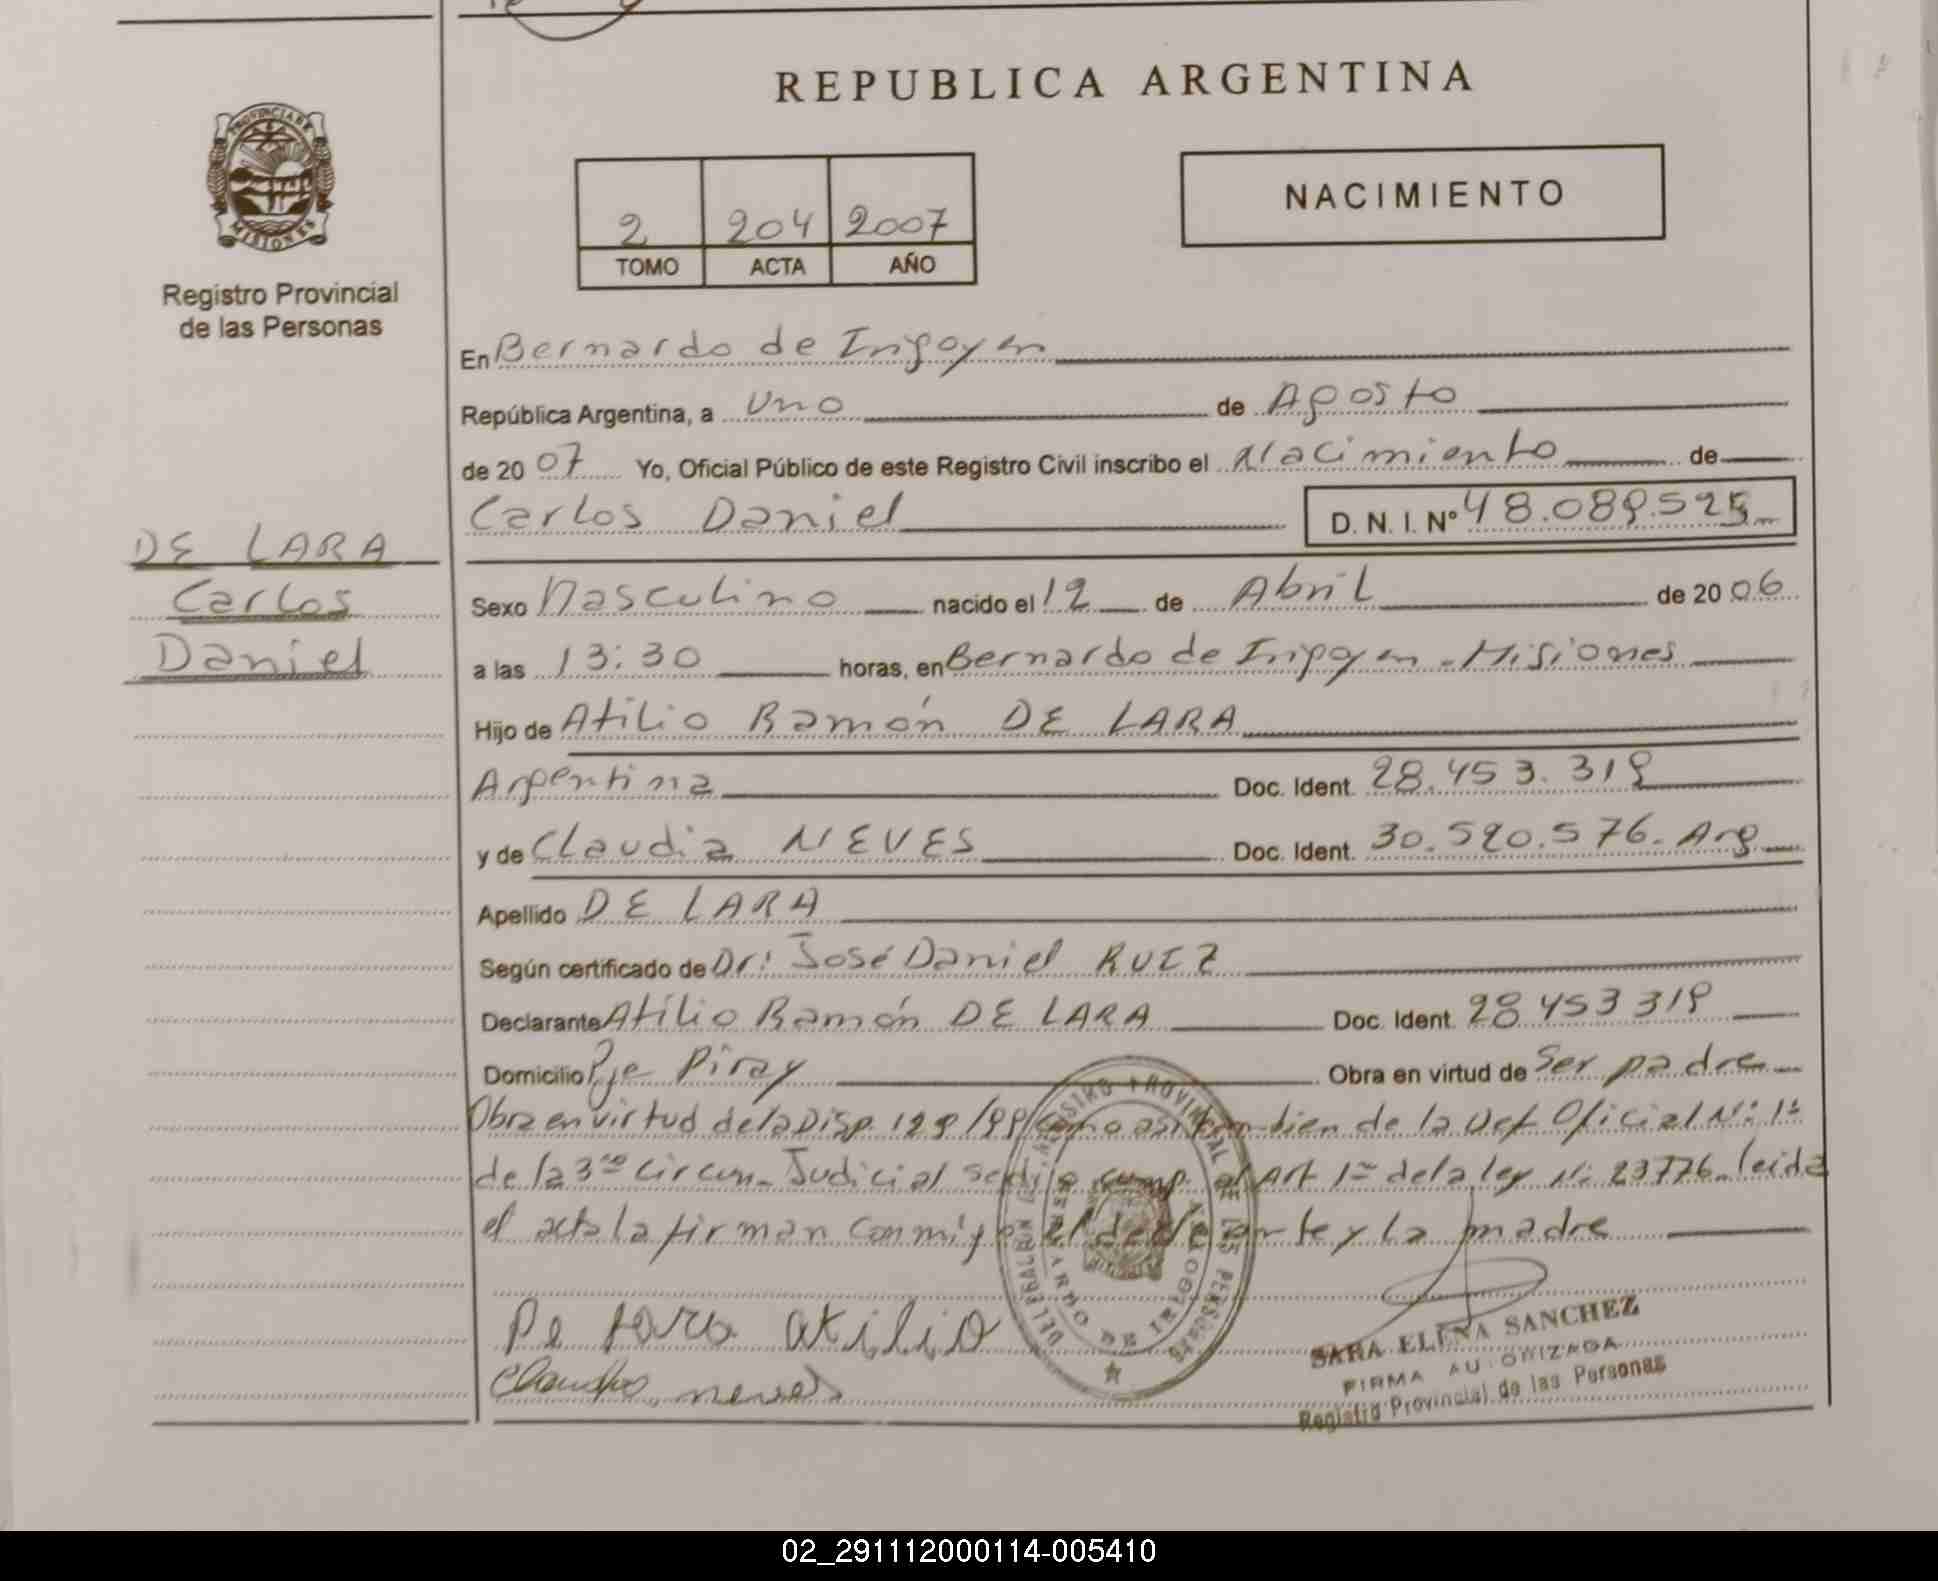 REPUBLICA ARGENTINA
PROVINCIA DE
MISIONES
Registro Provincial
de las Personas
2 204 2007
TOMO ACTA AÑO
NACIMIENTO
En Bernardo de Irigoyen
República Argentina, a Uno de Agosto
de 2007 Yo, Oficial Público de este Registro Civil inscribo el Nacimiento de
Carlos Daniel D. N. I. Nº 48.089.525
DE LARA
Carlos
Daniel
Sexo Masculino nacido el 12 de Abril de 2006
a las 13:30 horas, en Bernardo de Irigoyen - Misiones
Hijo de Atilio Ramón DE LARA
Argentina Doc. Ident. 28.453.319
y de Claudia NEVES Doc. Ident. 30.520.576. Arg
Apellido DE LARA
Según certificado de Dr: José Daniel RUIZ
Declarante Atilio Ramón DE LARA Doc. Ident. 28 453 319
Domicilio Pje Piray Obra en virtud de Ser padre
Obra en virtud de la Disp. 129/99 como asi tambien de la Def Oficial N: 1ª
de la 3ra Circun. Judicial se dio cump. al Art 1º de la ley N: 23776. leida
el acta la firman conmigo el declarante y la madre
De lara atilio
Claudia neves
REGISTRO PROVINCIAL DE LAS PERSONAS
BERNARDO DE IRIGOYEN
SARA ELENA SANCHEZ
FIRMA AUTORIZADA
Registro Provincial de las Personas
02_291112000114-005410